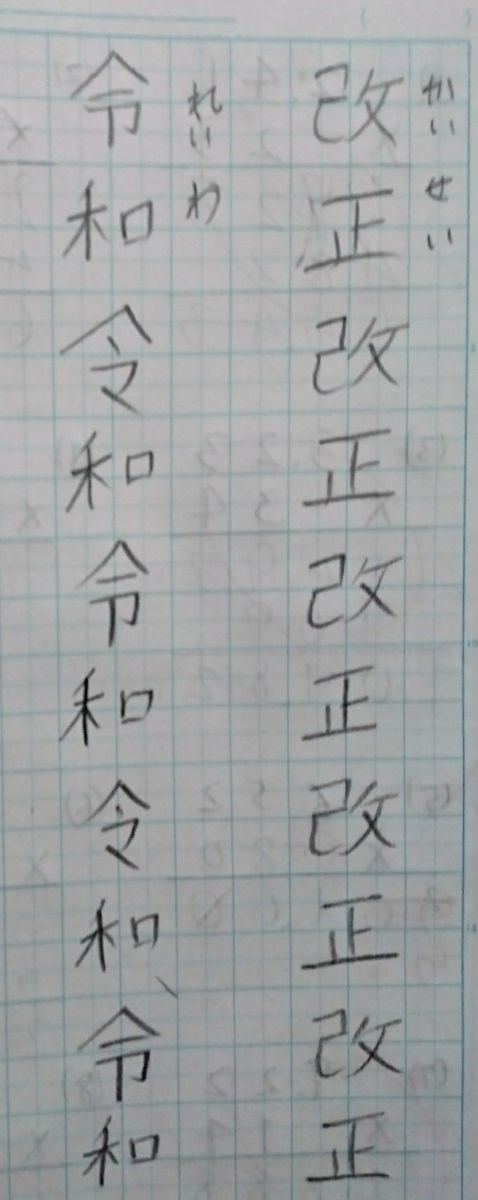 かいせい
改正改正改正改正改正
れいわ
令和令和令和令和令和